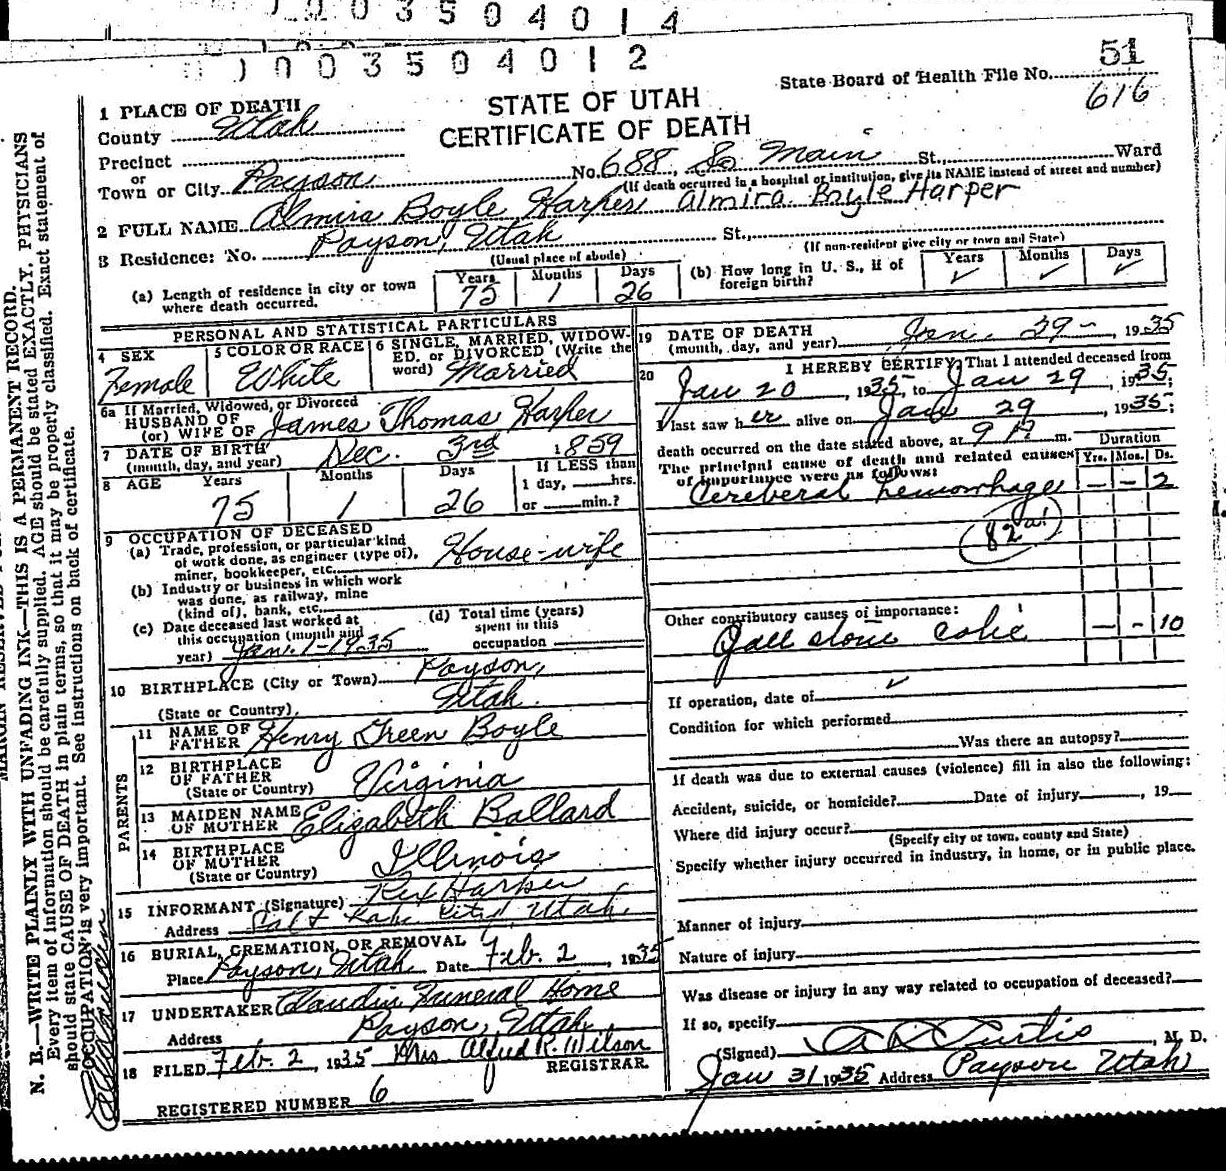 0 0 3 5 0 4 0 1 4
0 0 3 5 0 4 0 1 2
State Board of Health File No. 51
616
STATE OF UTAH
CERTIFICATE OF DEATH
1 PLACE OF DEATH
County Utah
Precinct
or
Town or City Payson No. 688, So Main St., Ward
(If death occurred in a hospital or institution, give its NAME instead of street and number)
2 FULL NAME Almira Boyle Harper Almira Boyle Harper
3 Residence: No. Payson, Utah St.,
(Usual place of abode) (If non-resident give city or town and State)
(a) Length of residence in city or town where death occurred. Years 75 Months 1 Days 26
(b) How long in U. S., if of foreign birth? Years ✓ Months ✓ Days ✓
PERSONAL AND STATISTICAL PARTICULARS
4 SEX Female
5 COLOR OR RACE White
6 SINGLE, MARRIED, WIDOWED, or DIVORCED (Write the word) Married
6a If Married, Widowed, or Divorced
HUSBAND OF
(or) WIFE OF James Thomas Harper
7 DATE OF BIRTH
(month, day, and year) Dec. 3rd 1859
8 AGE Years 75 Months 1 Days 26
If LESS than 1 day, hrs. or min.?
9 OCCUPATION OF DECEASED
(a) Trade, profession, or particular kind of work done, as engineer (type of), miner, bookkeeper, etc. House-wife
(b) Industry or business in which work was done, as railway, mine (kind of), bank, etc.
(c) Date deceased last worked at this occupation (month and year) Jan. 1-1935
(d) Total time (years) spent in this occupation
10 BIRTHPLACE (City or Town) Payson,
(State or Country) Utah.
PARENTS
11 NAME OF FATHER Henry Green Boyle
12 BIRTHPLACE OF FATHER
(State or Country) Virginia
13 MAIDEN NAME OF MOTHER Elizabeth Ballard
14 BIRTHPLACE OF MOTHER
(State or Country) Illinois
15 INFORMANT (Signature) Rex Harper
Address Salt Lake City, Utah.
16 BURIAL, CREMATION, OR REMOVAL
Place Payson, Utah Date Feb. 2, 1935
17 UNDERTAKER Claudin Funeral Home
Address Payson, Utah.
18 FILED Feb. 2, 1935 Mrs Alfred R. Wilson
REGISTRAR.
REGISTERED NUMBER 6
19 DATE OF DEATH
(month, day, and year) Jan. 29-, 1935
20 I HEREBY CERTIFY, That I attended deceased from
Jan 20, 1935, to Jan 29, 1935;
I last saw her alive on Jan 29, 1935;
death occurred on the date stated above, at 9 P. m.
The principal cause of death and related causes of importance were as follows:
Duration
Yrs. Mos. Ds.
Cereberal hemorrhage - - 2
82 a1
Other contributory causes of importance:
Gall stone colic - - 10
If operation, date of ✓
Condition for which performed
Was there an autopsy?
If death was due to external causes (violence) fill in also the following:
Accident, suicide, or homicide? Date of injury , 19
Where did injury occur?
(Specify city or town, county and State)
Specify whether injury occurred in industry, in home, or in public place.
Manner of injury
Nature of injury
Was disease or injury in any way related to occupation of deceased?
If so, specify
(Signed) A D Curtis, M. D.
Jan 31 1935 Address Payson Utah
N. B.—WRITE PLAINLY WITH UNFADING INK—THIS IS A PERMANENT RECORD.
Every item of information should be carefully supplied. AGE should be stated EXACTLY. PHYSICIANS
should state CAUSE OF DEATH in plain terms, so that it may be properly classified. Exact statement of
OCCUPATION is very important. See instructions on back of certificate.